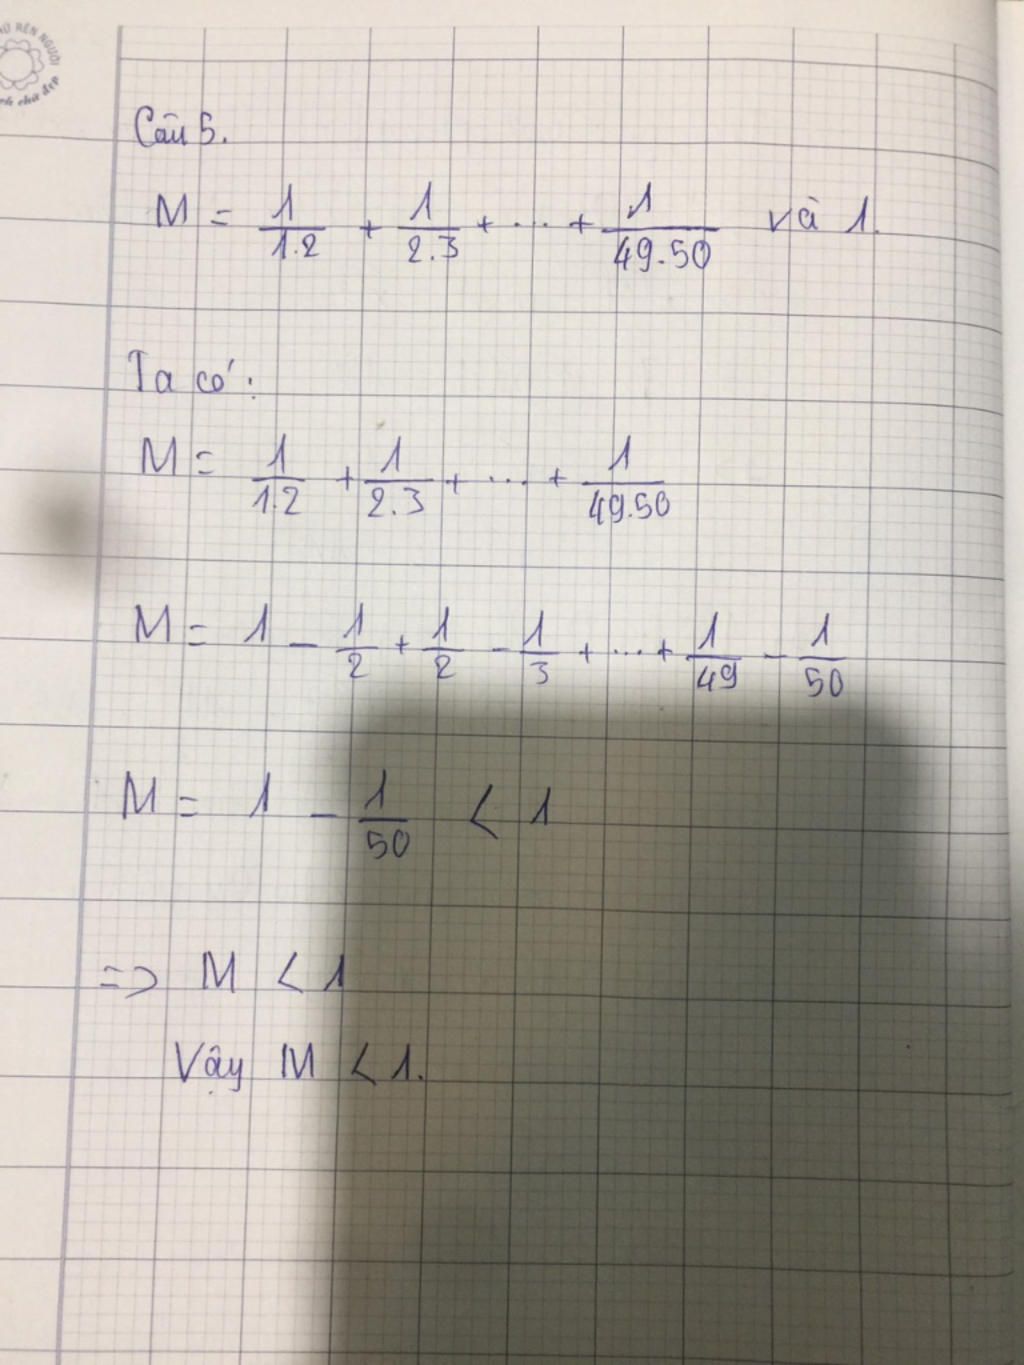 Câu 5.
M = 1/1.2 + 1/2.3 + ... + 1/49.50 và 1.
Ta có:
M = 1/1.2 + 1/2.3 + ... + 1/49.50
M = 1 - 1/2 + 1/2 - 1/3 + ... + 1/49 - 1/50
M = 1 - 1/50 < 1
=> M < 1
Vậy M < 1.